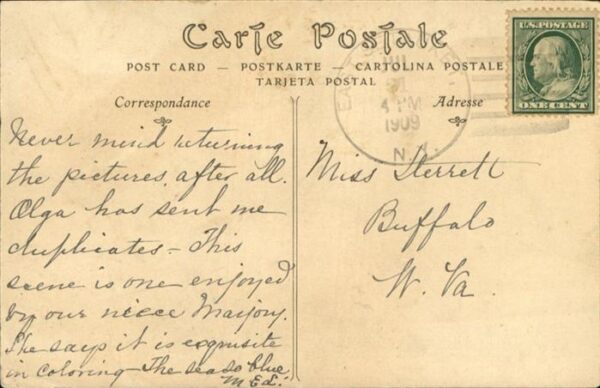 Carte Postale
POST CARD — POSTKARTE — CARTOLINA POSTALE
TARJETA POSTAL
Correspondance
Adresse
U.S. POSTAGE
ONE CENT
4 PM
1909
N.Y.
Never mind returning
the pictures, after all.
Olga has sent me
duplicates – This
scene is one enjoyed
by our niece Marjory.
She says it is exquisite
in coloring – The sea so blue
M Ed.
Miss Sterrett
Buffalo
W. Va.